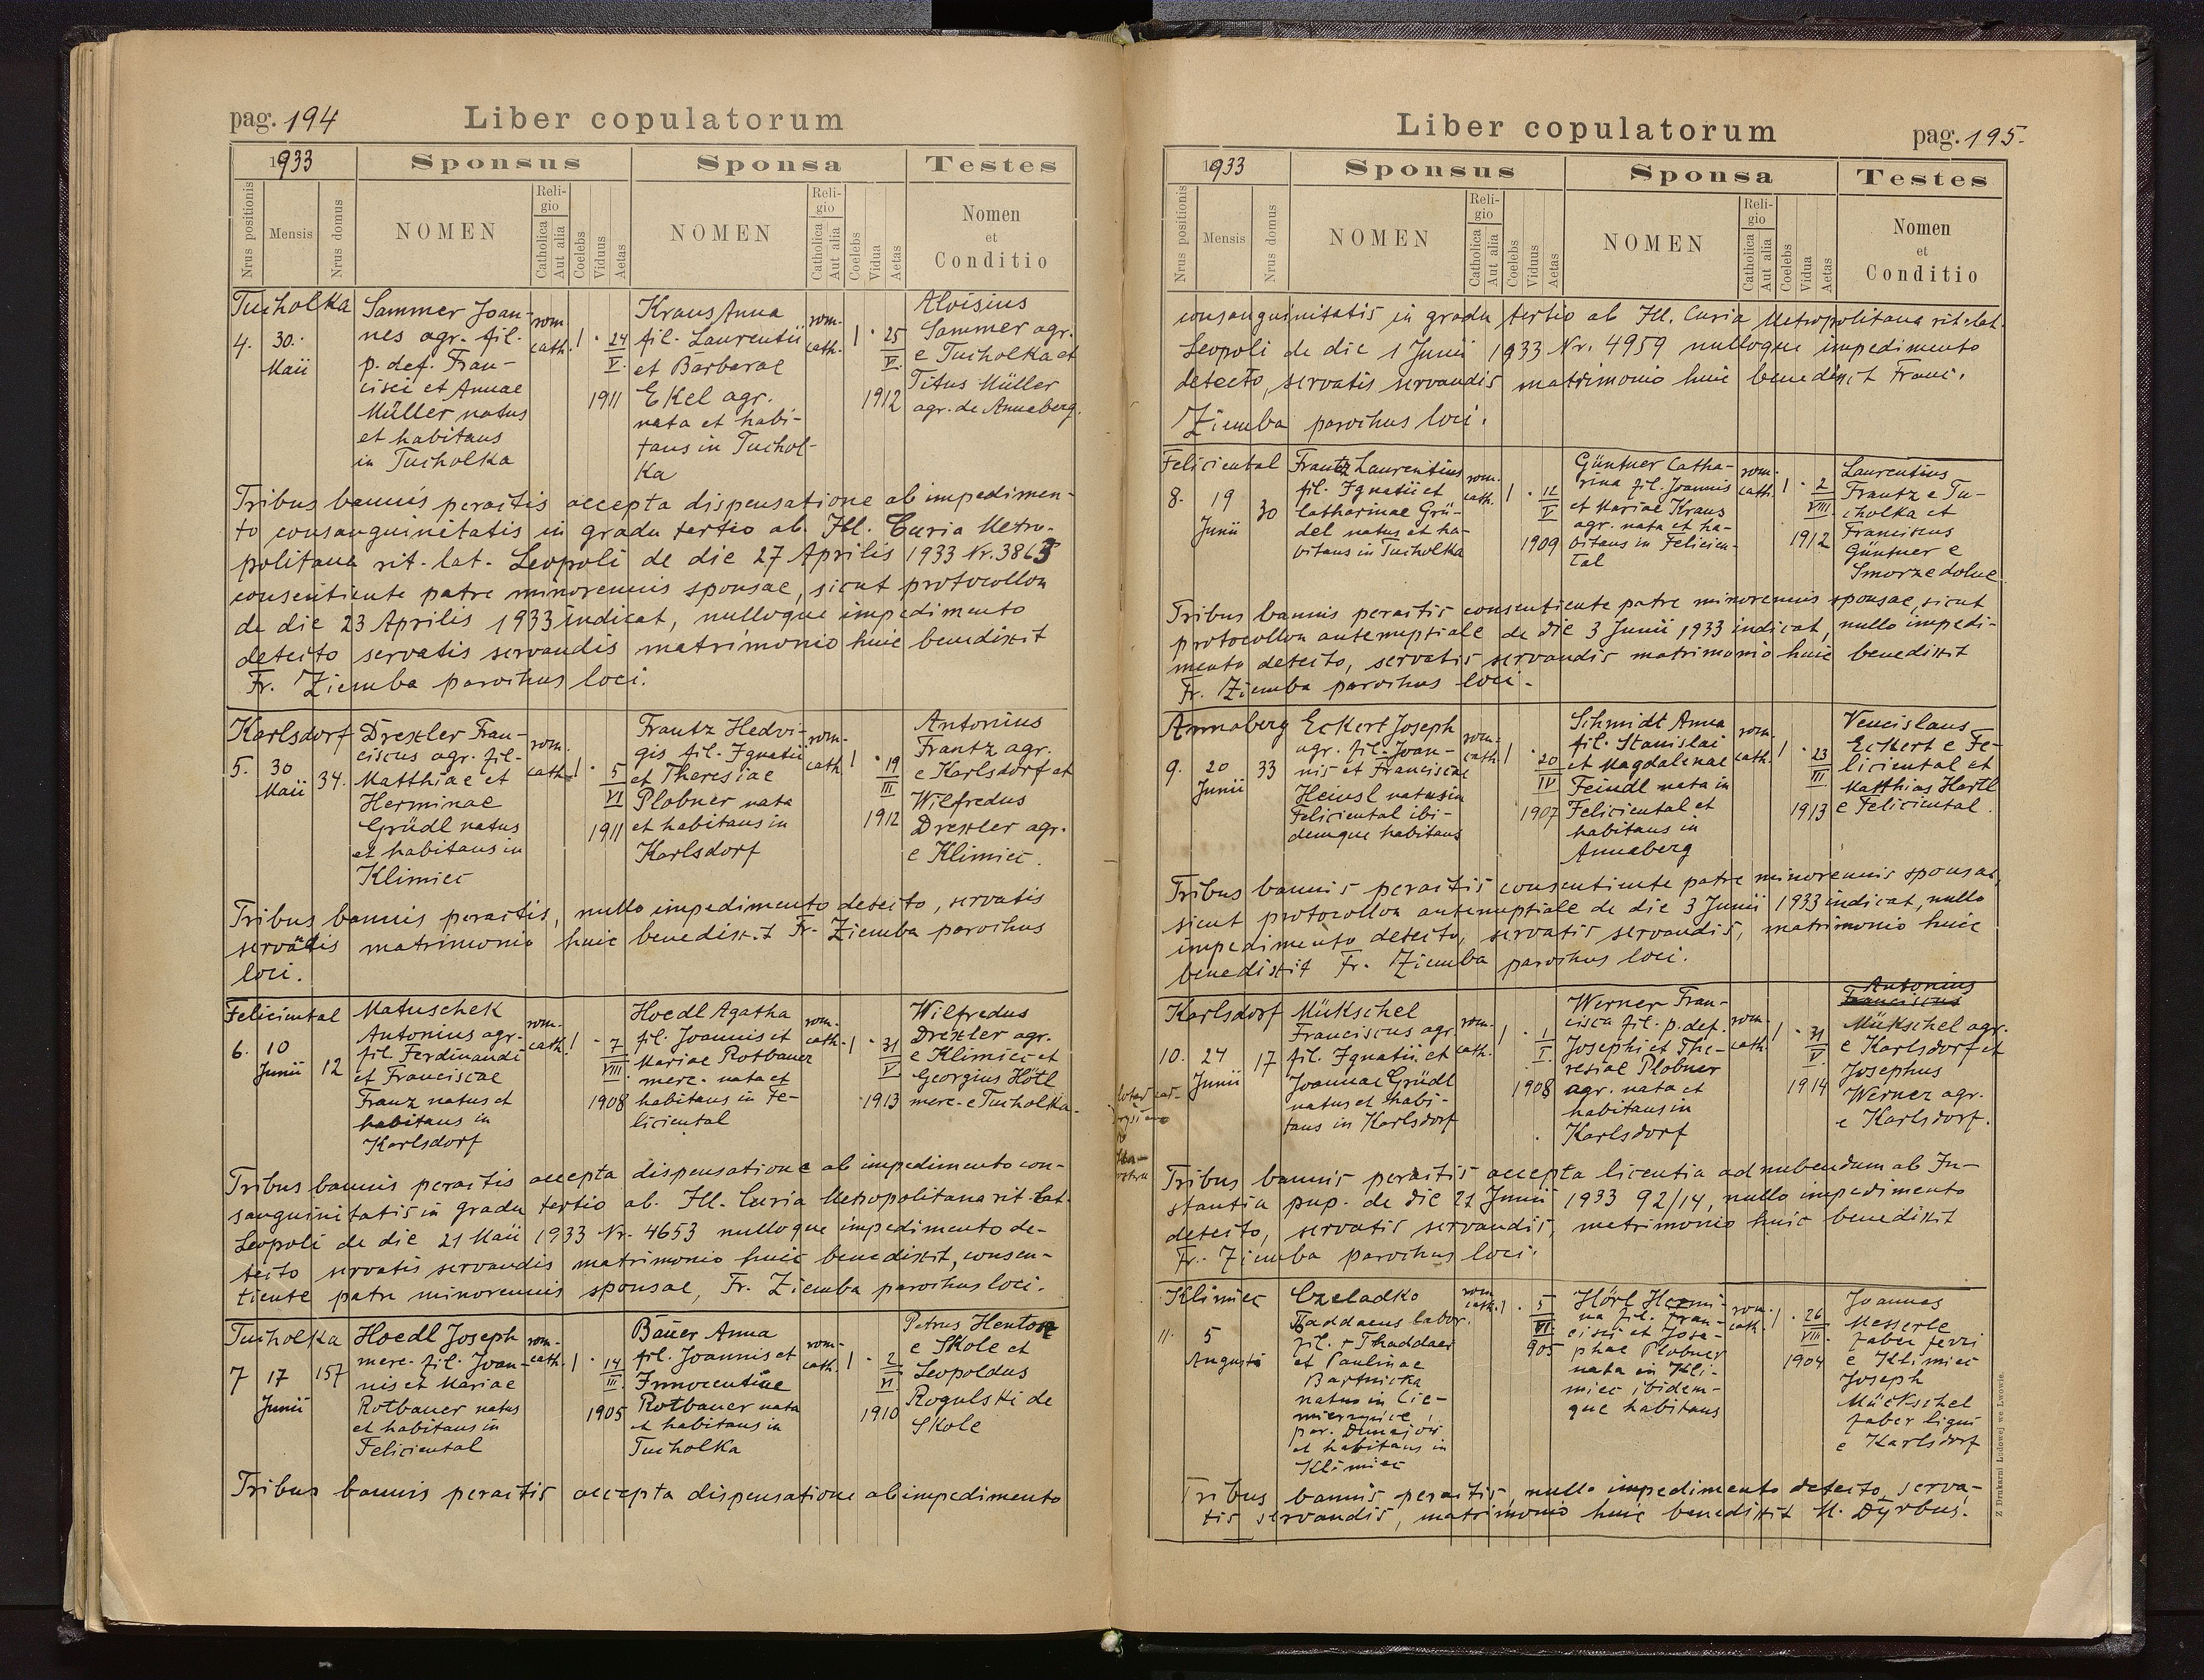 pag. 194
Liber copulatorum
1933
Sponsus
Sponsa
Testes
Nrus positionis
Mensis
Nrus domus
NOMEN
Religio
Catholica
Aut alia
Coelebs
Viduus
Aetas
NOMEN
Religio
Catholica
Aut alia
Coelebs
Vidua
Aetas
Nomen
et
Conditio
Tucholka
4. 30. Maii
Sammer Joan-
nes agr. fil.
p. def. Fran-
cisci et Annae
Müller natus
et habitans
in Tucholka
rom.
cath.
1 . 24
V.
1911
Kraus Anna
fil. Laurentii
et Barbarae
Ekel agr.
nata et habi-
tans in Tuchol-
ka
rom.
cath.
1 . 25
V
1912
Aloisius
Sammer agr.
e Tucholka et
Titus Müller
agr. de Annaberg.
Tribus bannis peractis accepta dispensatione ab impedimen-
to consanguinitatis in gradu tertio ab. Ill. Curia Metro-
politana rit. lat. Leopoli de die 27 Aprilis 1933 Nr. 3863
consentiente patre minorennis sponsae, sicut protocollon
de die 23 Aprilis 1933 indicat, nulloque impedimento
detecto servatis servandis matrimonio huic benedixit
Fr. Ziemba parochus loci.
Karlsdorf
5. 30 Maii 34.
Drexler Fran-
ciscus agr. fil.
Matthiae et
Herminae
Grüdl natus
et habitans in
Klimiec
rom.
cath.
1 . 5
VI
1911
Frantz Hedvi-
gis fil. Ignatii
et Theresiae
Plobner nata
et habitans in
Karlsdorf
rom.
cath.
1 . 19
III
1912
Antonius
Frantz agr.
e Karlsdorf et
Wilfredus
Drexler agr.
e Klimiec.
Tribus bannis peractis, nullo impedimento detecto, servatis
servadis matrimonio huic benedixit Fr. Ziemba parochus
loci.
Feliciental
6. 10 Junii 12
Matuschek
Antonius agr.
fil. Ferdinandi
et Franciscae
Franz natus et
habitans in
Karlsdorf
rom.
cath.
1 . 7
VIII
1908
Hoedl Agatha
fil. Joannis et
Mariae Rotbauer
merc. nata et
habitans in Fe-
liciental
rom.
cath.
1 . 31
V.
1913
Wilfredus
Drexler agr.
e Klimiec et
Georgius Hötl
merc. e Tucholka.
Tribus bannis peractis accepta dispensatione ab impedimento con-
sanguinitatis in gradu tertio ab. Ill. Curia Metropolitana rit. Lat.
Leopoli de die 21 Maii 1933 Nr. 4653 nulloque impedimento de-
tecto servatis servandis matrimonio huic benedixit, consen-
tiente patre minorennis sponsae, Fr. Ziemba parochus loci.
Tucholka
7 17 Junii 157
Hoedl Joseph
merc. fil. Joan-
nis et Mariae
Rotbauer natus
et habitans in
Feliciental
rom.
cath.
1 . 14
III.
1905
Bäuer Anna
fil. Joannis et
Innocentiae
Rotbauer nata
et habitans in
Tucholka
rom.
cath.
1 . 2
VI
1910
Petrus Henton
e Skole et
Leopoldus
Rogulski de
Skole
Tribus bannis peractis accepta dispensatione ab impedimento
Liber copulatorum
pag. 195.
1933
Sponsus
Sponsa
Testes
Nrus positionis
Mensis
Nrus domus
NOMEN
Religio
Catholica
Aut alia
Coelebs
Viduus
Aetas
NOMEN
Religio
Catholica
Aut alia
Coelebs
Vidua
Aetas
Nomen
et
Conditio
consanguinitatis in gradu tertio ab Ill. Curia Metropolitana rit. lat.
Leopoli de die 1 Junii 1933 Nr. 4959 nulloque impedimento
detecto, servatis servandis matrimonio huic benedixit Franc.
Ziemba parochus loci.
Feliciental
8. 19 Junii 30
Frantz Laurentius
fil. Ignatii et
Catharinae Grü-
del natus et ha-
bitans in Tucholka
rom.
cath.
1 . 12
V
1909
Güntner Catha-
rina fil. Joannis
et Mariae Kraus
agr. nata et ha-
bitans in Felicien-
tal
rom.
cath.
1 . 2
VIII
1912
Laurentius
Frantz e Tu-
cholka et
Franciscus
Güntner e
Smorze dolne
Tribus bannis peractis consentiente patre minorennis sponsae, sicut
protocollon antenuptiale de die 3 Junii 1933 indicat, nullo impedi-
mento detecto, servatis servandis matrimonio huic benedixit
Fr. Ziemba parochus loci.
Annaberg
9. 20 Junii 33
Eckert Joseph
agr. fil. Joan-
nis et Franciscae
Heinsl natus in
Feliciental ibi-
demque habitans
rom.
cath.
1 . 20
IV
1907
Schmidt Anna
fil. Stanislai
et Magdalenae
Feindl nata in
Feliciental et
habitans in
Annaberg
rom.
cath.
1 . 23
III
1913
Vencislaus
Eckert e Fe-
liciental et
Matthias Hartl
e Feliciental.
Tribus bannis peractis consentiente patre minorennis sponsae,
sicut protocollon antenuptiale de die 3 Junii 1933 indicat, nullo
impedimento detecto, servatis servandis, matrimonio huic
benedixit Fr. Ziemba parochus loci.
Karlsdorf
10. 24 Junii 17
Mükschel
Franciscus agr.
fil. Ignatii et
Joannae Grüdl
natus et habi-
tans in Karlsdorf
rom.
cath.
1 . 1
I.
1908
Werner Fran-
cisca fil. p. def.
Josephi et The-
resiae Plobner
agr. nata et
habitans in
Karlsdorf
rom.
cath.
1 . 31
V
1914
Antonius
Franciscus
Mükschel agr.
e Karlsdorf et
Josephus
Werner agr.
e Karlsdorf.
Tribus bannis peractis accepta licentia ad nubendum ab In-
stantia pup. de die 21 Junii 1933 92/14, nullo impedimento
detecto, servatis servandis, matrimonio huic benedixit
Fr. Ziemba parochus loci.
Klimiec
11. 5 Augusti
Czeladko
Taddaeus labor.
fil. + Thaddaei
et Paulinae
Bartnicka
natus in Cie-
mierzynce,
par. Dunajów
et habitans in
Klimiec
rom.
cath.
1 . 5
VI.
905
Hörl Hermi-
na fil. Fran-
cisci et Jose-
phae Plobner
nata in Kli-
miec ibidem-
que habitans
rom.
cath.
1 . 26
VIII.
1904
Joannes
Messerle
faber ferri
e Klimiec
Joseph
Mückschel
faber ligni
e Karlsdorf
Tribus bannis peractis, nullo impedimento detecto, serva-
tis servandis, matrimonio huic benedixit M. Dyrbuś.
Z Drukarni Ludowej we Lwowie.